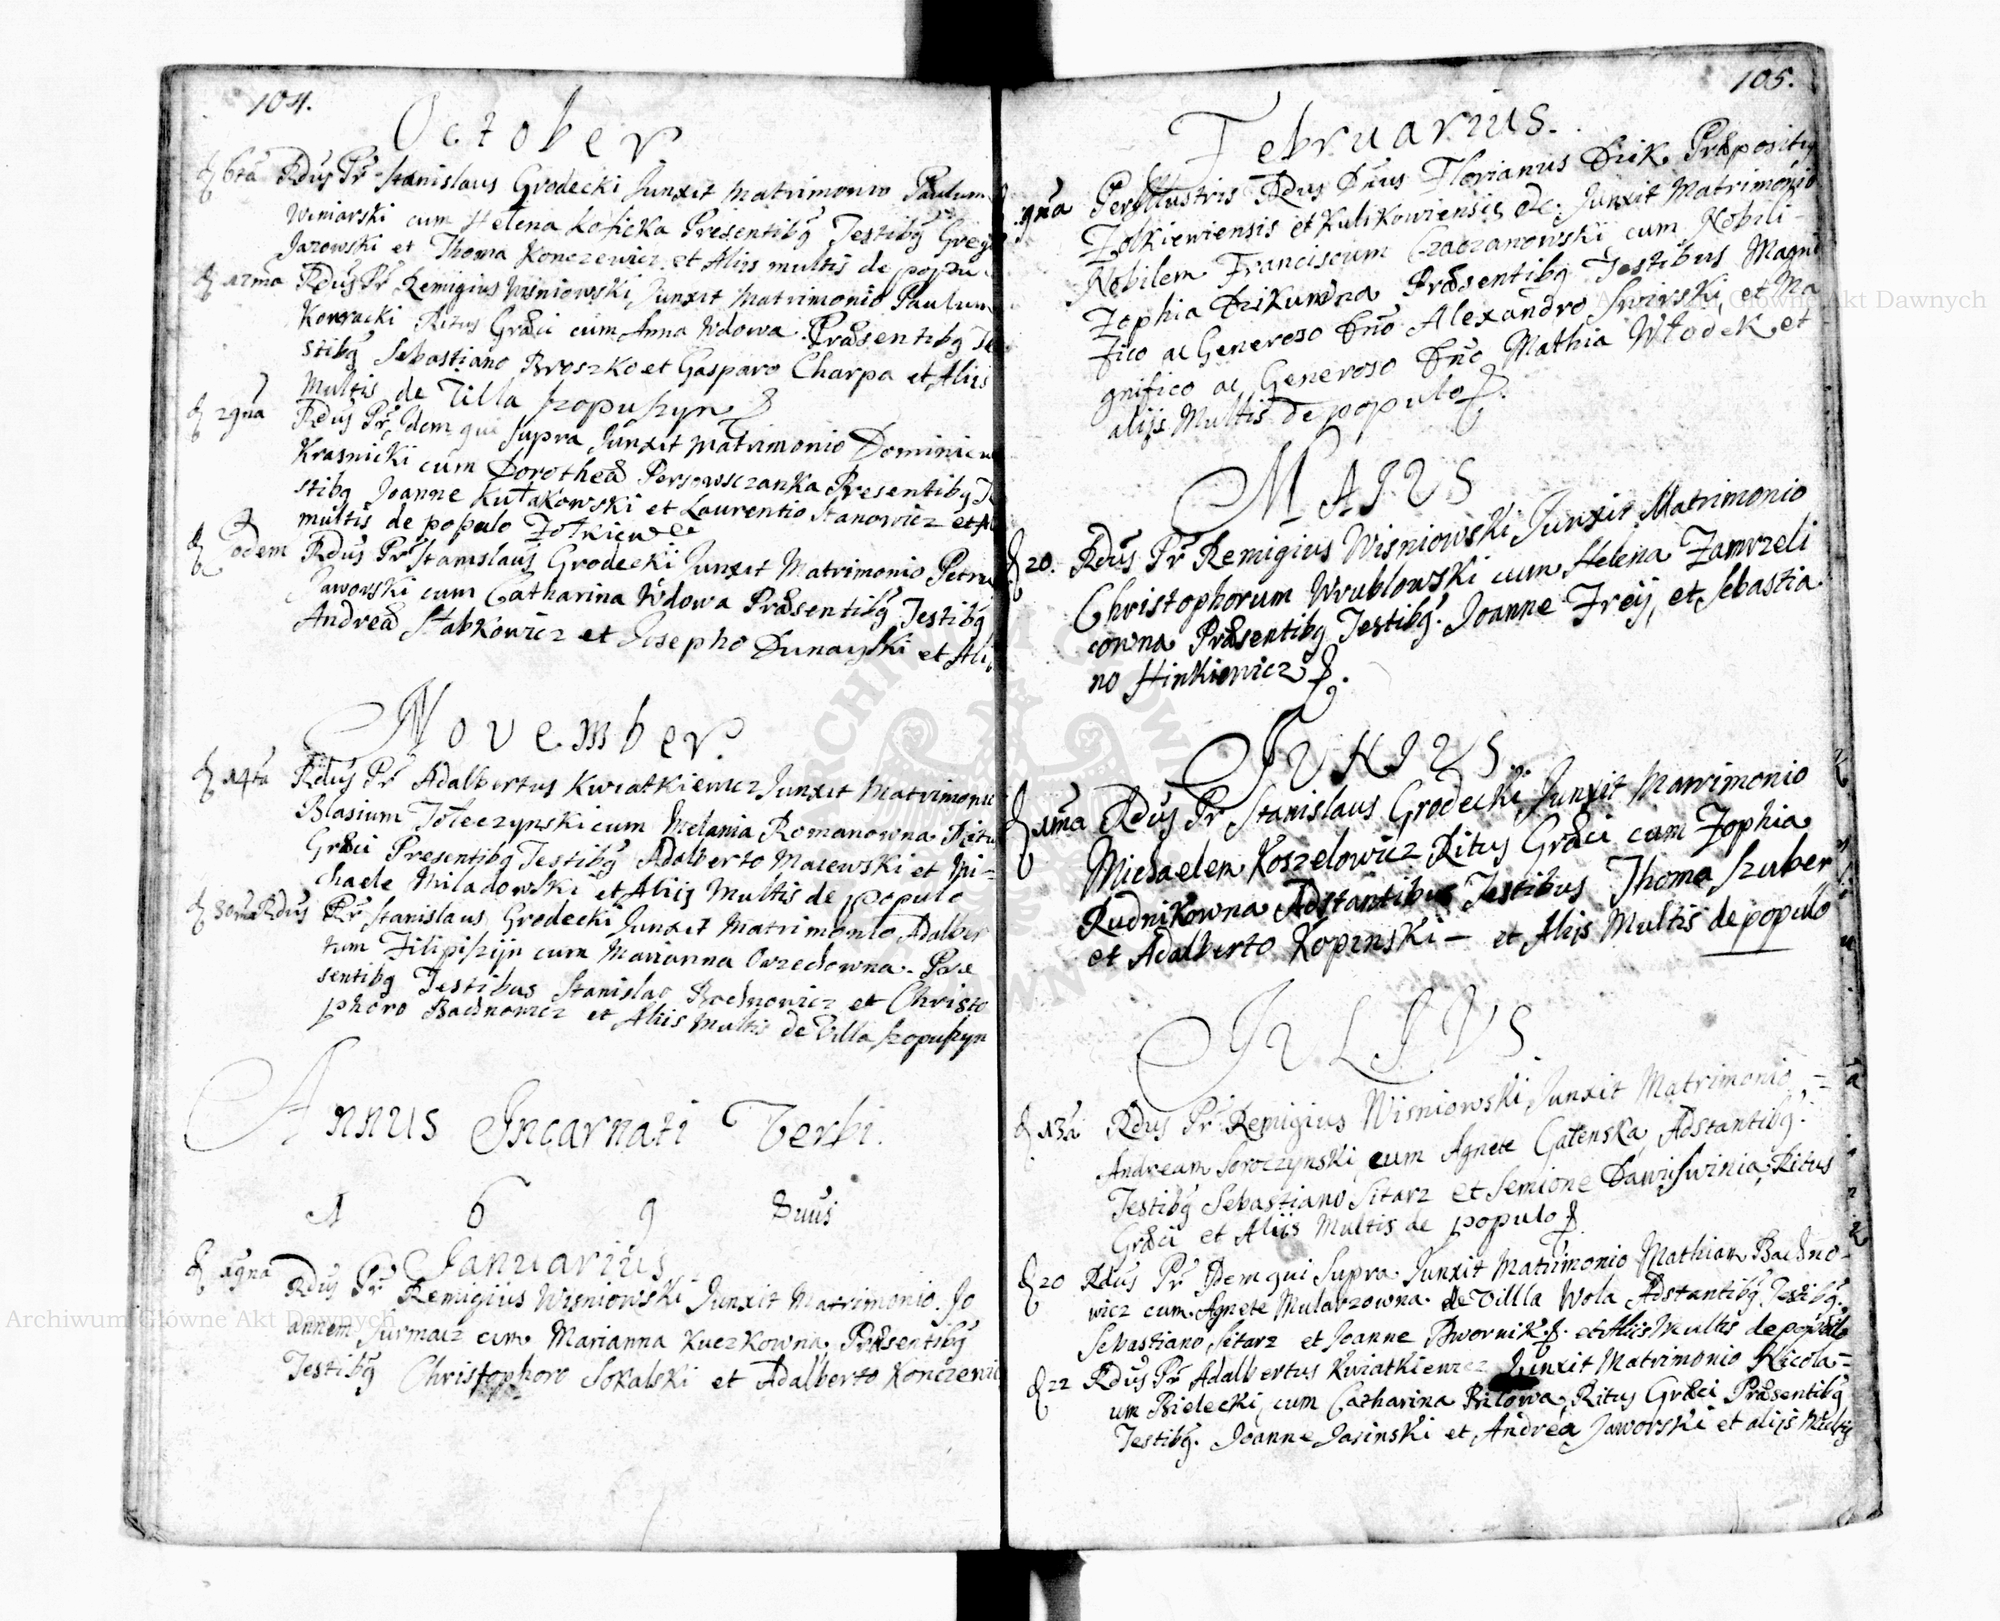 104.
October
6ta Rdus Pr Stanislaus Grodecki Junxit Matrimonio Paulum
Winiarski cum Helena Łosicka Presentibg Testibg Greg
Jazowski et Thoma Konczewicz et Aliis multis de popu
12ma Rdus Pr Remigius Wisniowski Junxit Matrimonio Paulum
Konracki Ritus Græci cum Anna Wdowa Præsentibg Te
stibg Sebastiano Broszko et Gasparo Charpa et Aliis
Multis de Villa Szopuszyn
29na Rdus Pr Idem qui supra Junxit matrimonio Dominicu
Krasnicki cum Dorothea Persowsczanka Presentibg Te
stibg Joanne Kułakowski et Laurentio Stanowicz et Al
multis de populo Zołkiew
Eodem Rdus Pr Stanislaus Grodecki Junxit Matrimonio Petru
Jaworski cum Catharina Wdowa Præsentibg Testibg
Andrea Stabkowicz et Josepho Dunayski et Ali
November
14ta Rdus Pr Adalbertus Kwiatkiewicz Junxit Matrimonio
Blasium Tołeczynski cum Melania Romanowna Ritu
Græci Presentibg Testibg Adalberto Maiewski et Mi-
chaele Miladowski et Aliis Multis de populo
30ma Rdus Pr Stanislaus Grodecki Junxit Matrimonio Adalber
tum Filipiszyn cum Marianna Orzechowna Præ
sentibg Testibus Stanislao Rochnowicz et Christo
phoro Bachnowicz et Aliis Multis de Villa Szopuszyn
Annus Incarnati Verbi.
1 6 9 2dus
Januarius
19na Rdus Pr Remigius Wisniowski Junxit Matrimonio Jo
annem Surmacz cum Marianna Kuczkowna Præsentibg
Testibg Christophoro Sokalski et Adalberto Konczewic
105.
Februarius.
9na Perillustris Rdus Dnus Florianus Dzik Præpositus
Zolkiewiensis et Kulikowiensis etc. Junxit Matrimonio
Nobilem Franciscum Czaczanowski cum Nobili-
Zophia Dzikuwna Præsentibg Testibus Magni
fico ac Generoso Dno Alexandro Swirski, et Ma
gnifico ac Generoso Dno Mathia Włodek et
alijs Multis de populo.
MAJUS
20. Rdus Pr Remigius Wisniowski Junxit Matrimonio
Christophorum Wrublowski cum Helena Zamrzeli
cowna Præsentibg Testibg. Joanne Frey, et Sebastia
no Hinkiewicz.
JUNIUS
1ma Rdus Pr Stanislaus Grodecki Junxit Matrimonio
Michaelem Koszelowicz Ritus Græci cum Zophia
Rudnikowna Adstantibus Testibus Thoma Szuber
et Adalberto Kopinski — et Alijs Multis de populo
JULIUS
13a Rdus Pr Remigius Wisniowski Junxit Matrimonio
Andream Soroczynski cum Agnete Gałenska Adstantibg.
Testibg Sebastiano Sitarz et Semione Dawiswinia Ritus
Græci et Aliis Multis de populo
20 Rdus Pr Idem qui Supra Junxit Matrimonio Mathiam Bachno-
wicz cum Agnete Mularzowna de Villa Wola Adstantibg Testibg.
Sebastiano Sitarz et Joanne Dwornik et Aliis Multis de populo
22 Rdus Pr Adalbertus Kwiatkiewicz Junxit Matrimonio Nicola=
um Bielecki, cum Catharina Ritus Græci Præsentibg
Testibg. Joanne Jasinski et Andrea Jaworski et alijs Multis
Archiwum Główne Akt Dawnych
Archiwum Główne Akt Dawnych